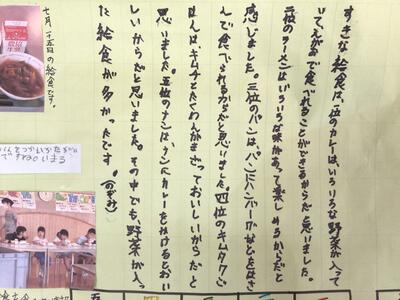 すきな給食は、一位のカレーは、いろいろな野菜が入って
いてえがおで食べれることができるからだと思いました。
二位のラーメンはいろいろな味があって楽しめるからだと
感じました。三位のパンは、パンにハンバーグなどをはさ
んで食べられるからだと思いました。四位のキムタクご
はんは、キムチとたくわんがまざっておいしいからだと
思いました。五位のナンは、ナンにカレーをつけるとおい
しいからだと思いました。その中でも、野菜が入っ
た給食が多かったです。(のぞみ)
七月二十五日の給食です。